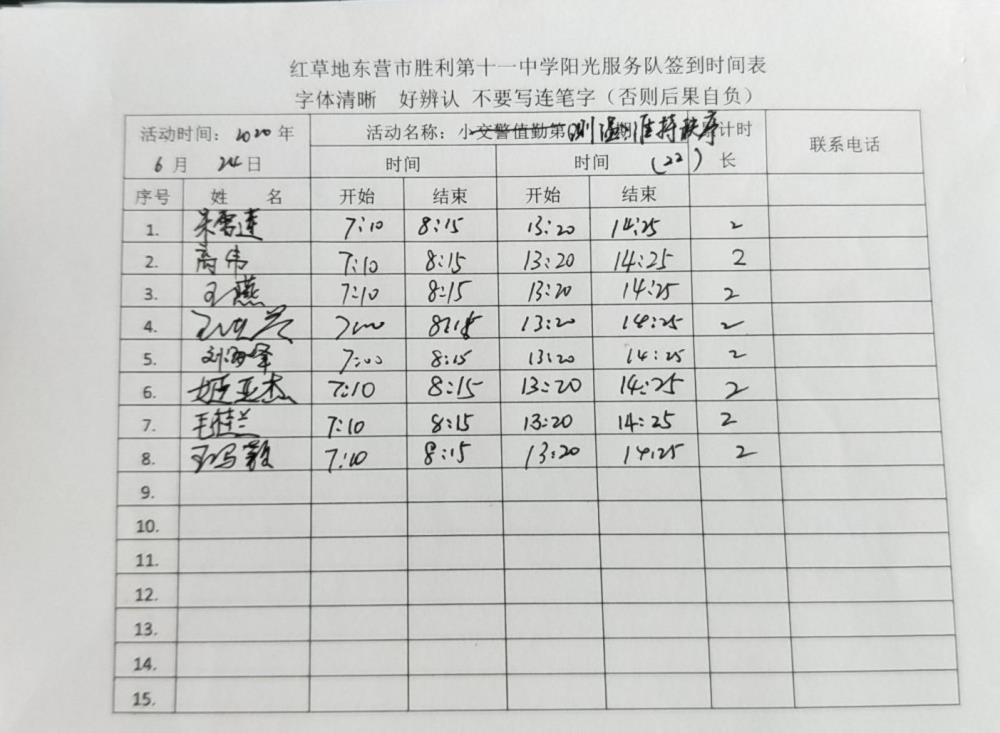 红草地东营市胜利第十一中学阳光服务队签到时间表
字体清晰 好辨认 不要写连笔字（否则后果自负）
活动时间：2020年 活动名称：小交警值勤第 测温维持秩序 累计时 联系电话
6月 24日 时间 时间 (22) 长
序号 姓 名 开始 结束 开始 结束
1. 7:10 8:15 13:20 14:25 2
2. 高伟 7:10 8:15 13:20 14:25 2
3. 王燕 7:10 8:15 13:20 14:25 2
4. 7:00 8:15 13:20 14:25 2
5. 刘海峰 7:00 8:15 13:20 14:25 2
6. 姬亚杰 7:10 8:15 13:20 14:25 2
7. 毛桂兰 7:10 8:15 13:20 14:25 2
8. 7:10 8:15 13:20 14:25 2
9.
10.
11.
12.
13.
14.
15.